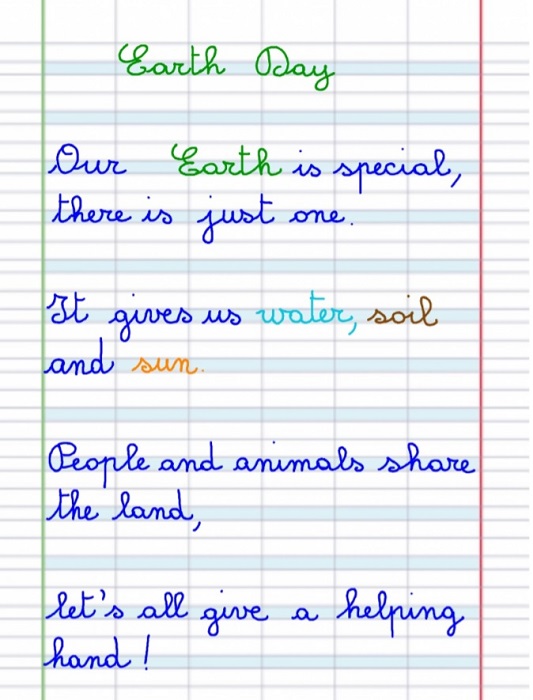 Earth Day
Our Earth is special,
there is just one.
It gives us water, soil
and sun.
People and animals share
the land,
let's all give a helping
hand !